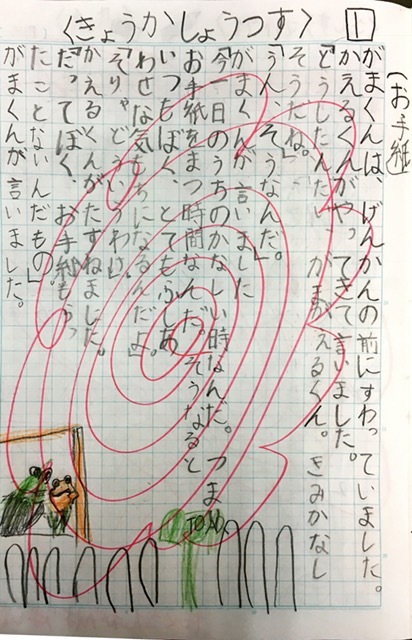 〈きょうかしょうつす〉 1
(お手紙)
がまくんは、げんかんの前にすわっていました。
かえるくんがやってきて言いました。
「どうしたんだい がまがえるくん。きみかなし
そうだね。」
「うん、そうなんだ。」
がまくんが言いました
「今一日のうちのかなしい時なんだ。つま
お手紙をまつ時間なんだ。そうなると
いつもぼく、とてもふしあ
わせな気もちになるんだよ。」
「そりゃ、どういうわけ。」
かえるくんがたずねました。
「だってぼく、お手紙もらっ
たことないんだもの。」
がまくんが言いました。
TOAD